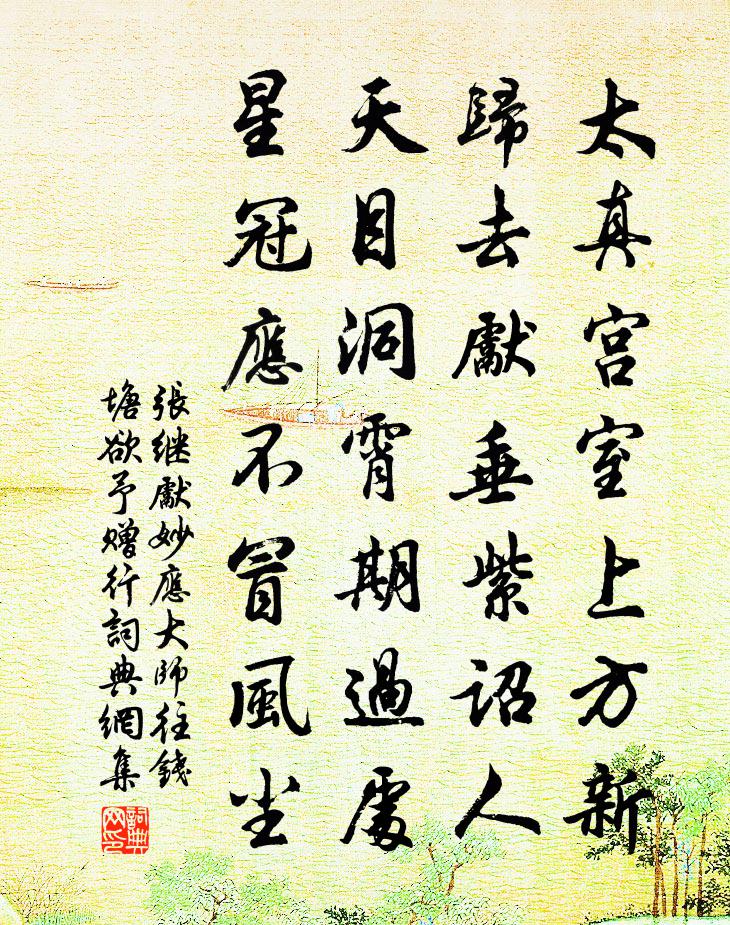 太真宮室上方新
歸去獻垂紫詔人
天目洞霄期過處
星冠應不冒風尘
張继獻妙應大師往錢
塘欲予赠行詞典網集
詞典
网印